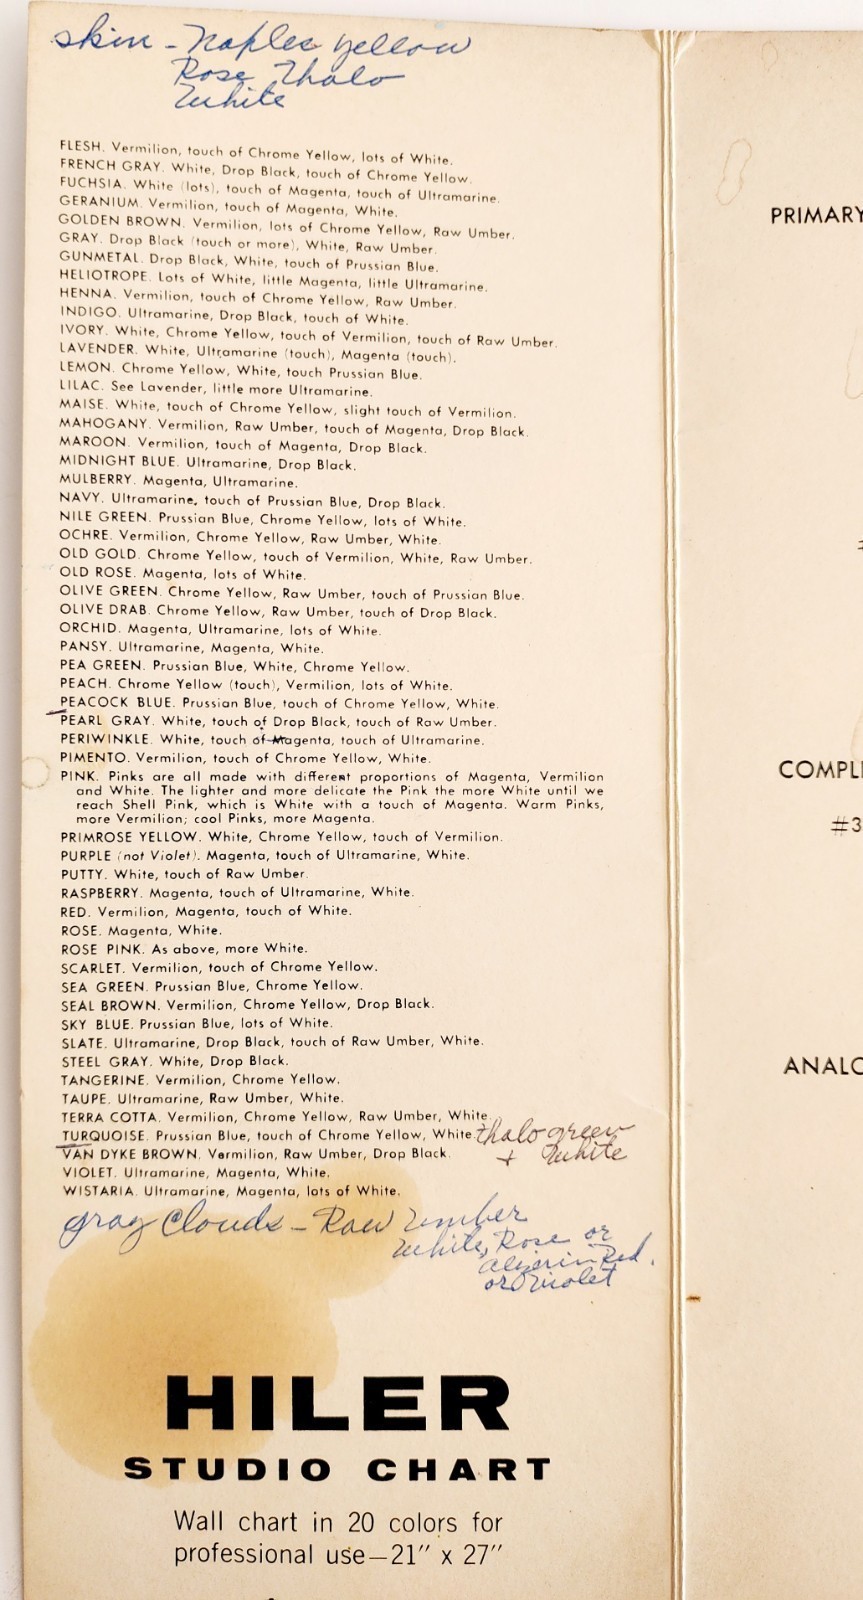 skin - Naples yellow
Rose Thalo
White
FLESH. Vermilion, touch of Chrome Yellow, lots of White.
FRENCH GRAY. White, Drop Black, touch of Chrome Yellow.
FUCHSIA. White (lots), touch of Magenta, touch of Ultramarine.
GERANIUM. Vermilion, touch of Magenta, White.
GOLDEN BROWN. Vermilion, lots of Chrome Yellow, Raw Umber.
GRAY. Drop Black (touch or more), White, Raw Umber.
GUNMETAL. Drop Black, White, touch of Prussian Blue.
HELIOTROPE. Lots of White, little Magenta, little Ultramarine.
HENNA. Vermilion, touch of Chrome Yellow, Raw Umber.
INDIGO. Ultramarine, Drop Black, touch of White.
IVORY. White, Chrome Yellow, touch of Vermilion, touch of Raw Umber.
LAVENDER. White, Ultramarine (touch), Magenta (touch).
LEMON. Chrome Yellow, White, touch Prussian Blue.
LILAC. See Lavender, little more Ultramarine.
MAISE. White, touch of Chrome Yellow, slight touch of Vermilion.
MAHOGANY. Vermilion, Raw Umber, touch of Magenta, Drop Black.
MAROON. Vermilion, touch of Magenta, Drop Black.
MIDNIGHT BLUE. Ultramarine, Drop Black.
MULBERRY. Magenta, Ultramarine.
NAVY. Ultramarine, touch of Prussian Blue, Drop Black.
NILE GREEN. Prussian Blue, Chrome Yellow, lots of White.
OCHRE. Vermilion, Chrome Yellow, Raw Umber, White.
OLD GOLD. Chrome Yellow, touch of Vermilion, White, Raw Umber.
OLD ROSE. Magenta, lots of White.
OLIVE GREEN. Chrome Yellow, Raw Umber, touch of Prussian Blue.
OLIVE DRAB. Chrome Yellow, Raw Umber, touch of Drop Black.
ORCHID. Magenta, Ultramarine, lots of White.
PANSY. Ultramarine, Magenta, White.
PEA GREEN. Prussian Blue, White, Chrome Yellow.
PEACH. Chrome Yellow (touch), Vermilion, lots of White.
PEACOCK BLUE. Prussian Blue, touch of Chrome Yellow, White.
PEARL GRAY. White, touch of Drop Black, touch of Raw Umber.
PERIWINKLE. White, touch of Magenta, touch of Ultramarine.
PIMENTO. Vermilion, touch of Chrome Yellow, White.
PINK. Pinks are all made with different proportions of Magenta, Vermilion
and White. The lighter and more delicate the Pink the more White until we
reach Shell Pink, which is White with a touch of Magenta. Warm Pinks,
more Vermilion; cool Pinks, more Magenta.
PRIMROSE YELLOW. White, Chrome Yellow, touch of Vermilion.
PURPLE (not Violet). Magenta, touch of Ultramarine, White.
PUTTY. White, touch of Raw Umber.
RASPBERRY. Magenta, touch of Ultramarine, White.
RED. Vermilion, Magenta, touch of White.
ROSE. Magenta, White.
ROSE PINK. As above, more White.
SCARLET. Vermilion, touch of Chrome Yellow.
SEA GREEN. Prussian Blue, Chrome Yellow.
SEAL BROWN. Vermilion, Chrome Yellow, Drop Black.
SKY BLUE. Prussian Blue, lots of White.
SLATE. Ultramarine, Drop Black, touch of Raw Umber, White.
STEEL GRAY. White, Drop Black.
TANGERINE. Vermilion, Chrome Yellow.
TAUPE. Ultramarine, Raw Umber, White.
TERRA COTTA. Vermilion, Chrome Yellow, Raw Umber, White.
TURQUOISE. Prussian Blue, touch of Chrome Yellow, White. thalo green
+ White
VAN DYKE BROWN. Vermilion, Raw Umber, Drop Black.
VIOLET. Ultramarine, Magenta, White.
WISTARIA. Ultramarine, Magenta, lots of White.
gray Clouds - Raw Umber
White, Rose or
alizerin Red.
or violet
HILER
STUDIO CHART
Wall chart in 20 colors for
professional use—21" x 27"
PRIMARY
COMPL
#3